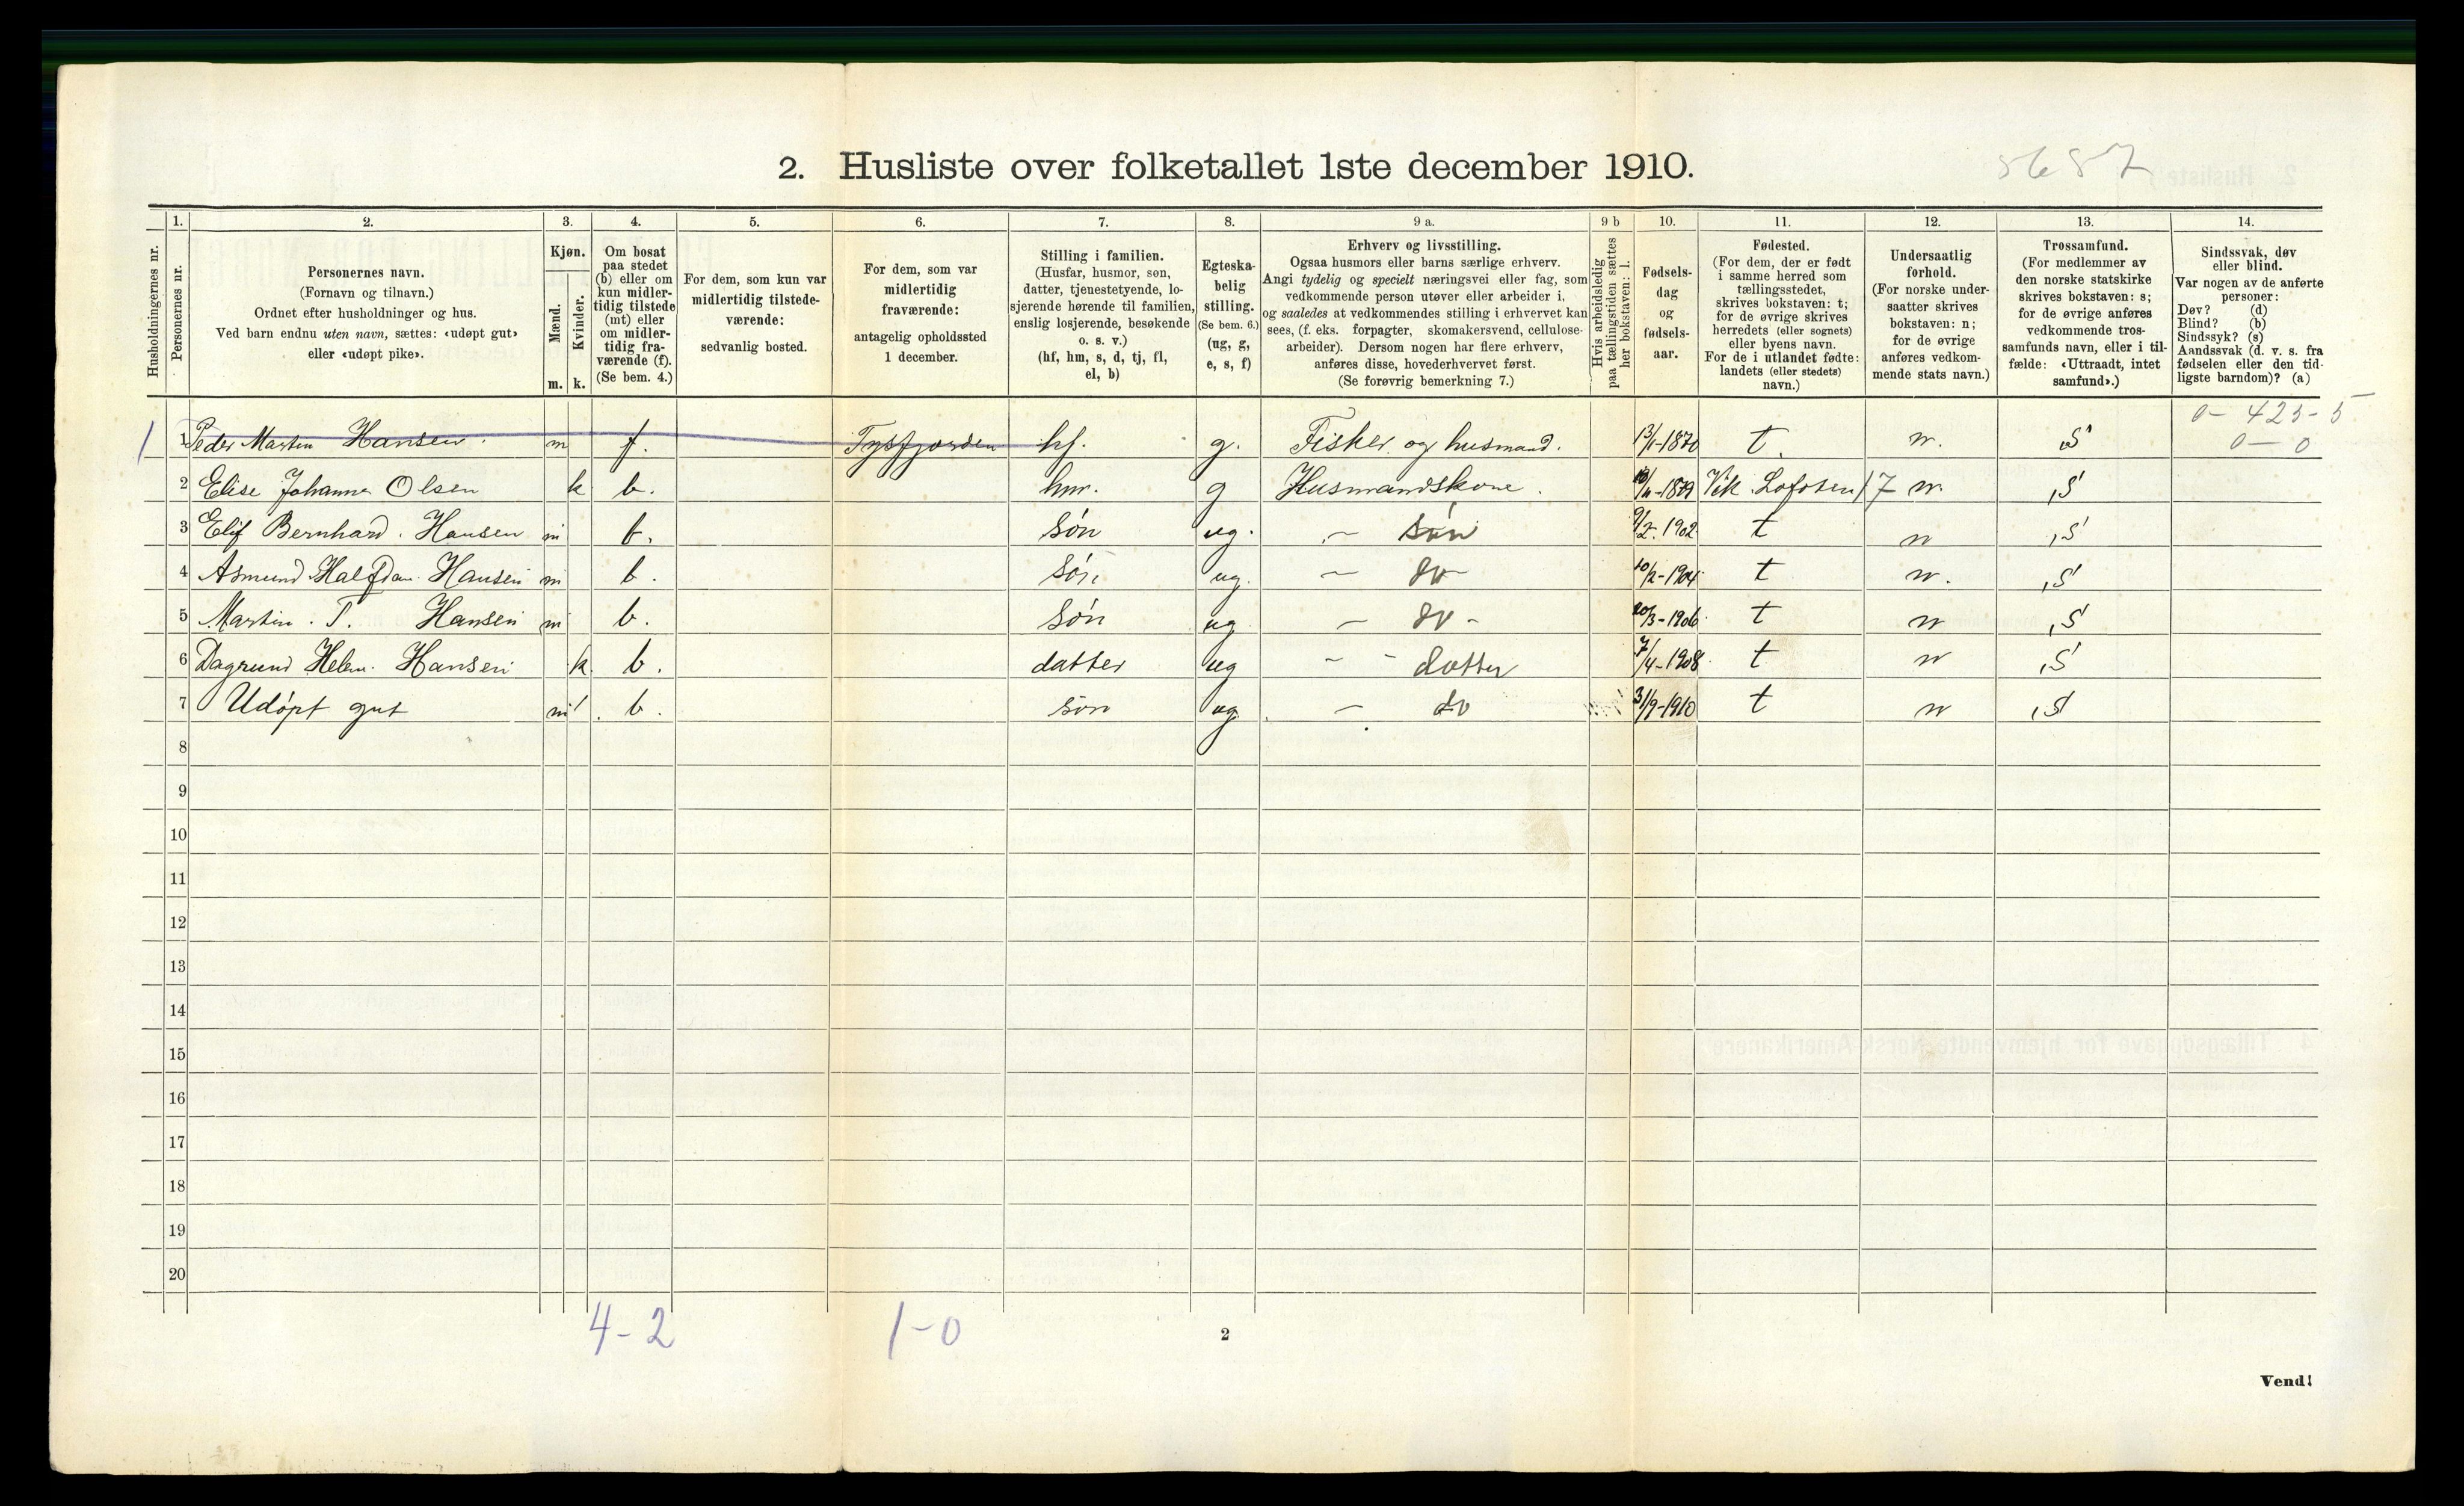 2. Husliste over folketallet 1ste december 1910.
1. 2. 3. 4. 5. 6. 7. 8. 9 a. 9 b 10. 11. 12. 13. 14.
Husholdningernes nr.
Personernes nr.
Personernes navn.
(Fornavn og tilnavn.)
Ordnet efter husholdninger og hus.
Ved barn endnu uten navn, sættes: «udøpt gut»
eller «udøpt pike».
Kjøn.
Mænd.
Kvinder.
m. k.
Om bosat
paa stedet
(b) eller om
kun midler-
tidig tilstede
(mt) eller
om midler-
tidig fra-
værende (f).
(Se bem. 4.)
For dem, som kun var
midlertidig tilstede-
værende:
sedvanlig bosted.
For dem, som var
midlertidig
fraværende:
antagelig opholdssted
1 december.
Stilling i familien.
(Husfar, husmor, søn,
datter, tjenestetyende, lo-
sjerende hørende til familien,
enslig losjerende, besøkende
o. s. v.)
(hf, hm, s, d, tj, fl,
el, b)
Egteska-
belig
stilling.
(Se bem. 6.)
(ug, g,
e, s, f)
Erhverv og livsstilling.
Ogsaa husmors eller barns særlige erhverv.
Angi tydelig og specielt næringsvei eller fag, som
vedkommende person utøver eller arbeider i,
og saaledes at vedkommendes stilling i erhvervet kan
sees, (f. eks. forpagter, skomakersvend, cellulose-
arbeider). Dersom nogen har flere erhverv,
anføres disse, hovederhvervet først.
(Se forøvrig bemerkning 7.)
Hvis arbeidsledig
paa tællingstiden sættes
her bokstaven: l.
Fødsels-
dag
og
fødsels-
aar.
Fødested.
(For dem, der er født
i samme herred som
tællingsstedet,
skrives bokstaven: t;
for de øvrige skrives
herredets (eller sognets)
eller byens navn.
For de i utlandet fødte:
landets (eller stedets)
navn.)
Undersaatlig
forhold.
(For norske under-
saatter skrives
bokstaven: n;
for de øvrige
anføres vedkom-
mende stats navn.)
Trossamfund.
(For medlemmer av
den norske statskirke
skrives bokstaven: s;
for de øvrige anføres
vedkommende tros-
samfunds navn, eller i til-
fælde: «Uttraadt, intet
samfund».)
Sindssvak, døv
eller blind.
Var nogen av de anførte
personer:
Døv? (d)
Blind? (b)
Sindssyk? (s)
Aandssvak (d. v. s. fra
fødselen eller den tid-
ligste barndom)? (a)
0- 423-5
1 1 Peder Martin Hansen. m f. Tysfjorden hf. g. Fisker og husmand. 13/1-1870 t. n. S 0-0
2 Elise Johanna Olsen k b. hm. g Husmandskone. /11-1879 Vik Lofoten 17 n. S
3 Elif Bernhard. Hansen m b. søn ug. — søn 9/2-1902 t n S
4 Asmund Halfdan Hansen m b. søn ug. — do — 10/2-1904 t n. S
5 Martin. T. Hansen m b. søn ug — do - 20/3-1906 t n S
6 Dagrund Helen. Hansen k. b. datter ug - - datter 7/4-1908 t n S
7 Udøpt gut m b. søn ug. — do 3/9-1910 t n S
8
9
10
11
12
13
14
15
16
17
18
19
20
4-2 1-0
2
Vend!